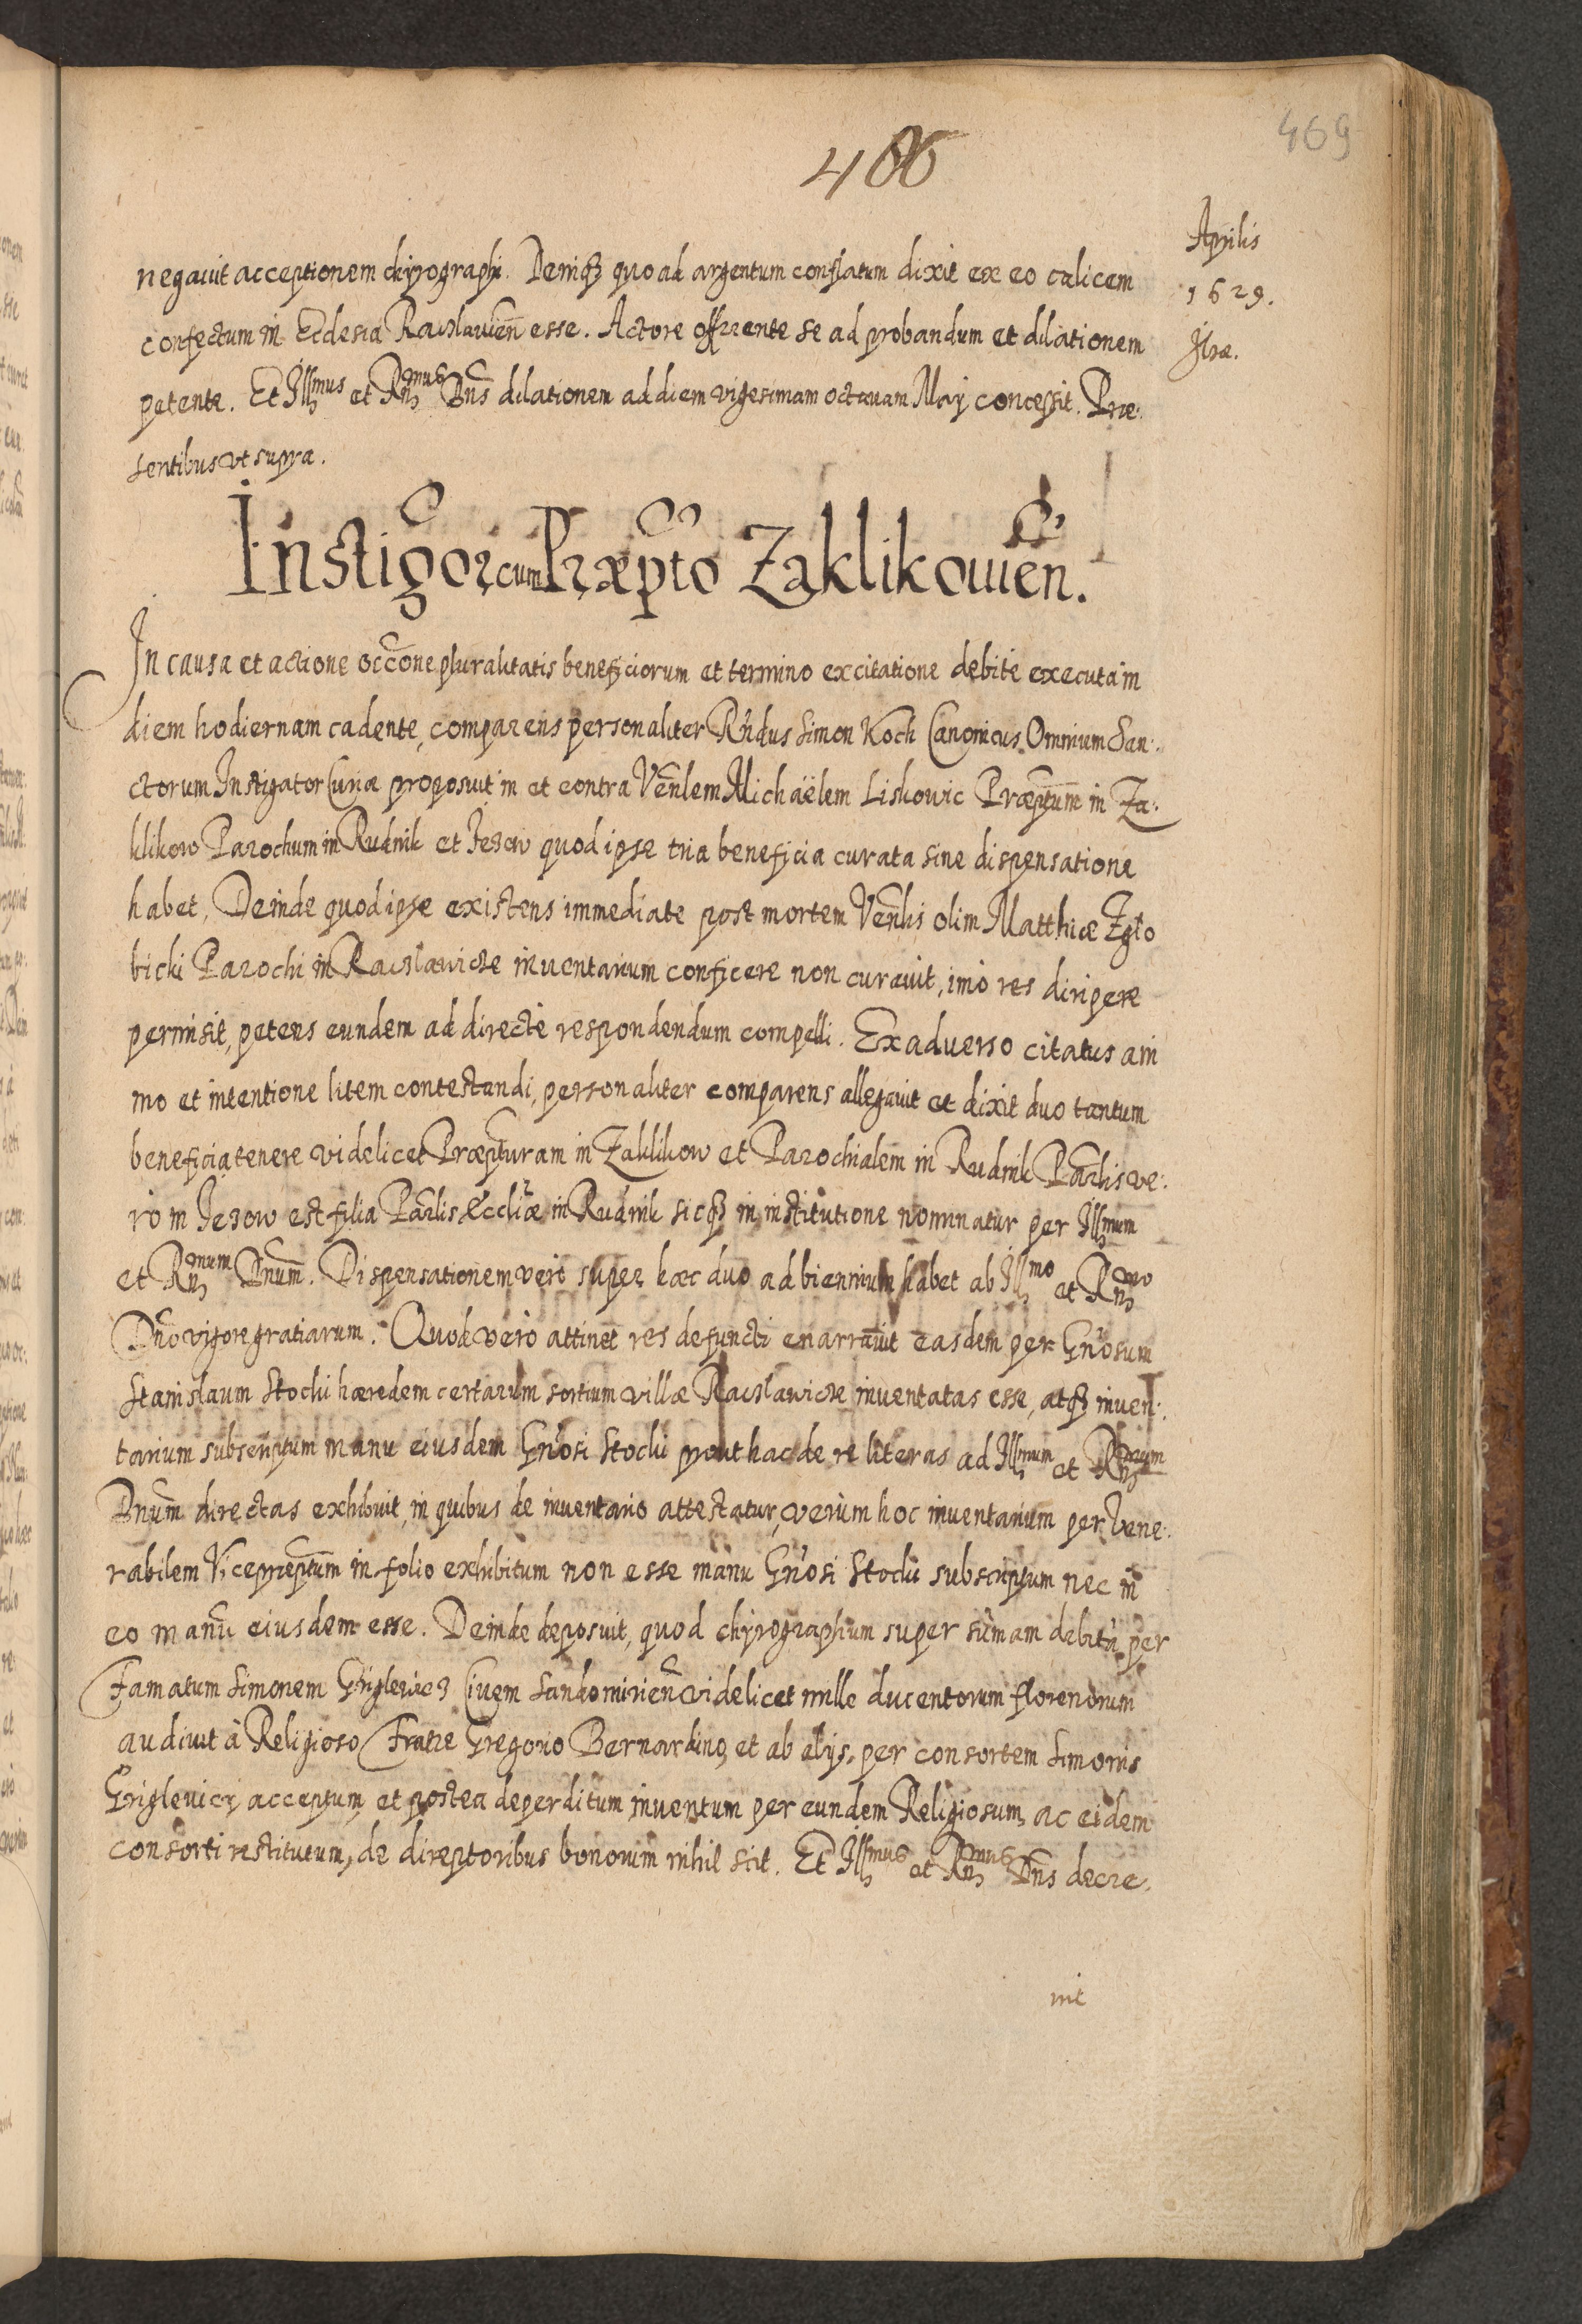 469
486
Aprilis
1629.
Jlzæ.
negauit acceptionem chyrographi. Deniqȝ quo ad argentum conflatum dixit ex eo calicem
confectum in Ecclesia Racslauien̄ esse. Actore offerente se ad probandum et dilationem
petente. Et Jllmus et Rn̄mus Dn̄s dilationem ad diem vigesimam octauam Maij concessit. Præ:
sentibus vt supra.
Instigor cum Præpto Zaklikouien.
In causa et actione occōne pluralitatis beneficiorum et termino ex citatione debite executa in
diem hodiernam cadente, comparens personaliter Rn̄dus Simon Koch Canonicus Omnium San:
ctorum Instigator Curiæ proposuit in et contra Ven̄lem Michaëlem Liskowic Præptum in Za:
klikow Parochum in Rudnik et Jezow quod ipse tria beneficia curata sine dispensatione
habet, Deinde quod ipse existens immediate post mortem Ven̄lis olim Matthiæ Zgło
bicki Parochi in Racslawice inuentarium conficere non curauit, imò res diripere
permisit, petens eundem ad directè respondendum compelli. Ex aduerso citatus ani
mo et intentione litem contestandi, personaliter comparens allegauit et dixit duo tantum
beneficia tenere videlicet Præpturam in Zaklikow et Parochialem in Rudnik Parlis ve:
rò in Jezow est filia Parlis Eccliæ in Rudnik sicqȝ in institutione nominatur per Jllmum
et Rn̄mum Dnum̄. Dispensationem verò super hæc duo ad biennium habet ab Jllmo et Rn̄mo
Dn̄o vigore gratiarum. Quod verò attinet res defuncti enarrauit easdem per Gn̄osum
Stanislaum Stocki hæredem certarum sortium villæ Racslawice inuentatas esse, atqȝ inuen:
tarium subscriptum manu eiusdem Gn̄osi Stocki prout hac de re literas ad Jllmum et Rn̄mum
Dnum̄ directas exhibuit, in quibus de inuentario attestatur, verùm hoc inuentarium per Vene:
rabilem Vicepræptum in folio exhibitum non esse manu Gn̄osi Stocki subscriptum nec in
eo manū eiusdem esse. Deinde deposuit, quod chyrographum super sūmam debitā per
Famatum Simonem Griglewicz Ciuem Sandomirien̄ videlicet mille ducentorum florenorum
audiuit à Religioso Fratre Gregorio Bernardino, et ab alijs, per consortem Simonis
Griglevicȳ acceptum, et postea deperditum inuentum per eundem Religiosum, ac eidem
consorti restitutum, de direptoribus bonorum nihil scit. Et Jllmus et Rn̄mus Dn̄s decre.
uit